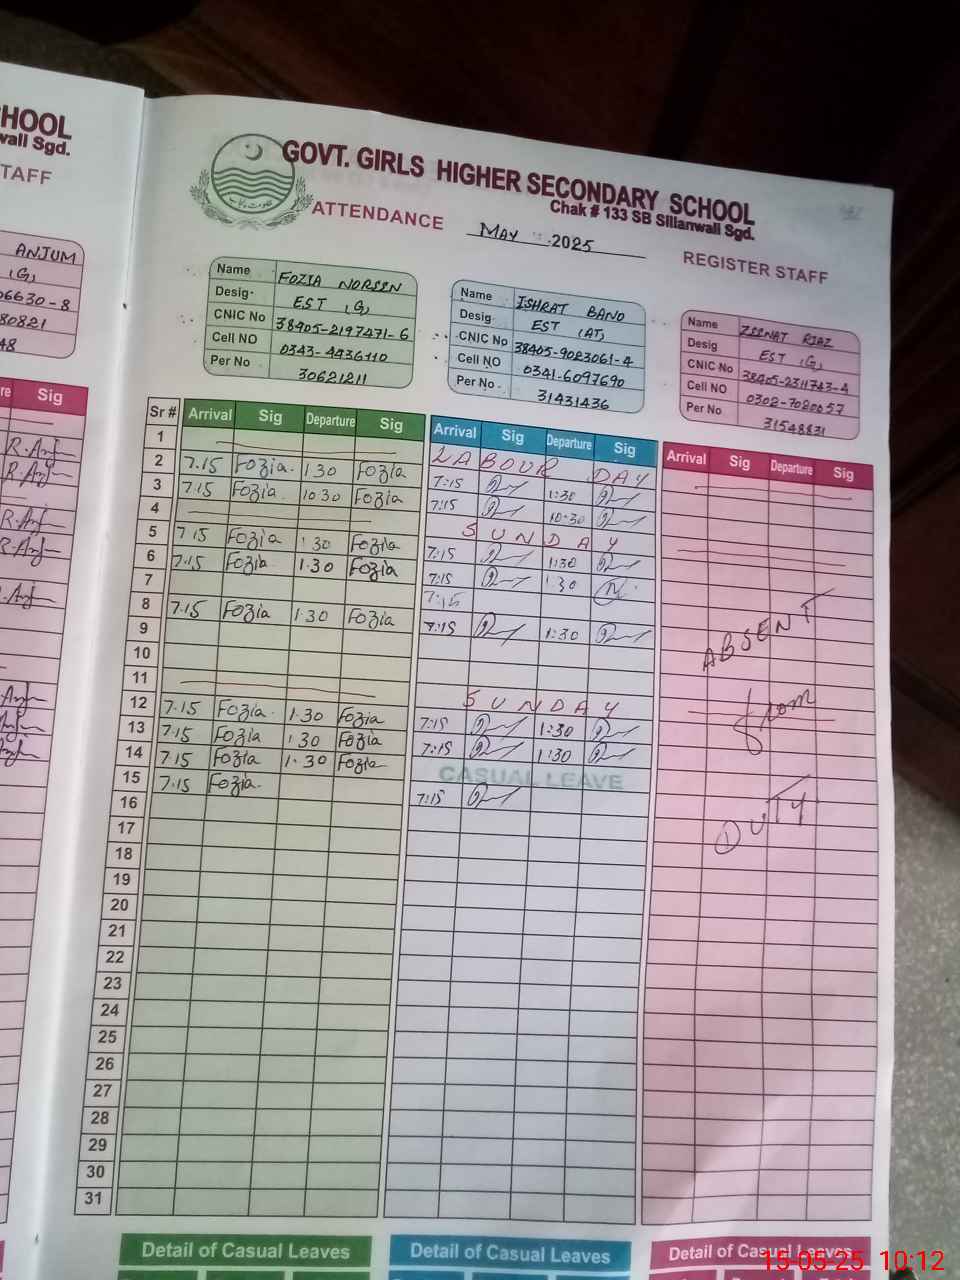 HOOL
wali Sgd.
TAFF
ANJUM
(G)
06630-8
80821
48
re Sig
R.Anj
R.Anj
R.Anj
R.Anj
GOVT. GIRLS HIGHER SECONDARY SCHOOL
Chak # 133 SB Sillanwali Sgd.
حکومت پنجاب
ATTENDANCE MAY 2025 REGISTER STAFF
Name FOZIA NOREEN
Desig. EST (G)
CNIC No 38405-2197471-6
Cell NO 0343-4436110
Per No 30621211
Name ISHRAT BANO
Desig EST (AT)
CNIC No 38405-9023061-4
Cell NO 0341-6097690
Per No 31431436
Name ZEENAT RIAZ
Desig EST (G)
CNIC No 38405-2311743-4
Cell NO 0302-7020057
Per No 31548831
Sr # Arrival Sig Departure Sig Arrival Sig Departure Sig Arrival Sig Departure Sig
1 LABOUR DAY
2 7.15 Fozia. 1.30 Fozia 7:15 1:30
3 7.15 Fozia. 10 30 Fozia 7:15 10-30
4 SUNDAY
5 7 15 Fozia 1.30 Fozia 7:15 1:30
6 7.15 Fozia. 1.30 Fozia 7:15 1:30
7 7:15
8 7.15 Fozia 1.30 Fozia 7:15 1:30
9
10
11 SUNDAY
12 7.15 Fozia. 1.30 Fozia 7:15 1:30
13 7.15 Fozia 1 30 Fozia 7:15 1:30
14 7.15 Fozia 1.30 Fozia CASUAL LEAVE
15 7.15 Fozia. 7:15
16
17
18
19
20
21
22
23
24
25
26
27
28
29
30
31
ABSENT
from
DUTY
Detail of Casual Leaves Detail of Casual Leaves Detail of Casual Leaves
15-05-25 10:12